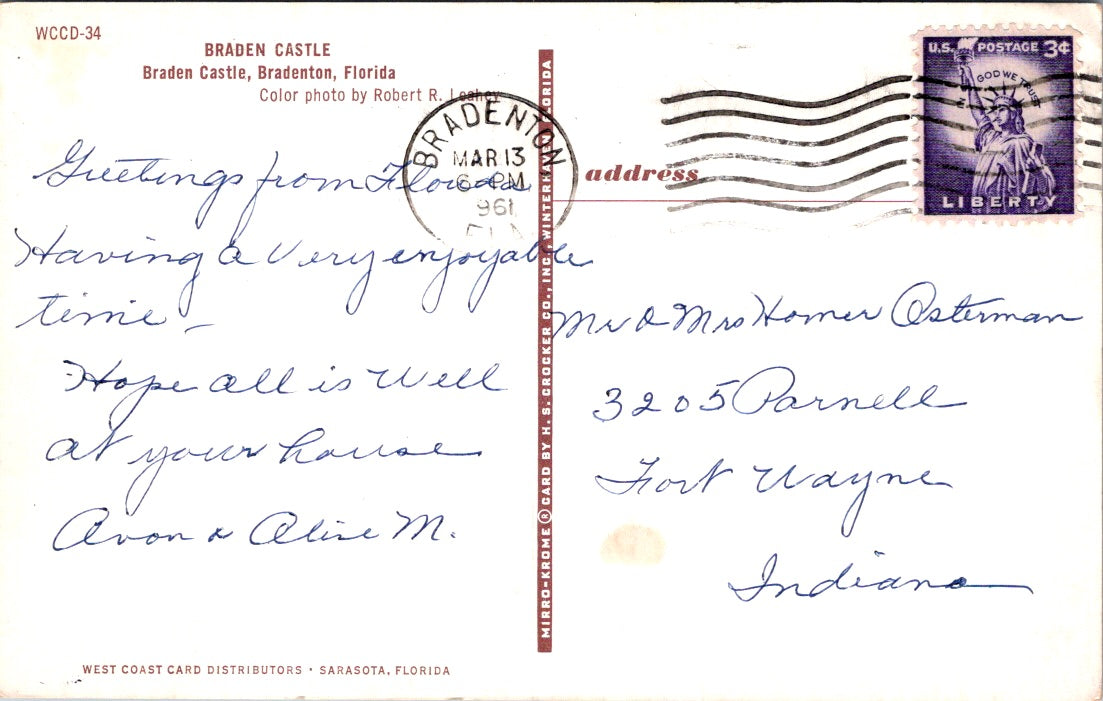 WCCD-34
BRADEN CASTLE
Braden Castle, Bradenton, Florida
Color photo by Robert R. Leahey
Greetings from Florida
Having a Very enjoyable
time -
Hope all is Well
at your house
Avon & Aline M.
WEST COAST CARD DISTRIBUTORS • SARASOTA, FLORIDA
MIRRO-KROME ® CARD BY H. S. CROCKER CO., INC., WINTER HAVEN, FLORIDA
BRADENTON
MAR 13
6 - PM
1961
FLA
address
U.S. POSTAGE 3¢
IN GOD WE TRUST
LIBERTY
Mr & Mrs Homer Osterman
3205 Parnell
Fort Wayne
Indiana